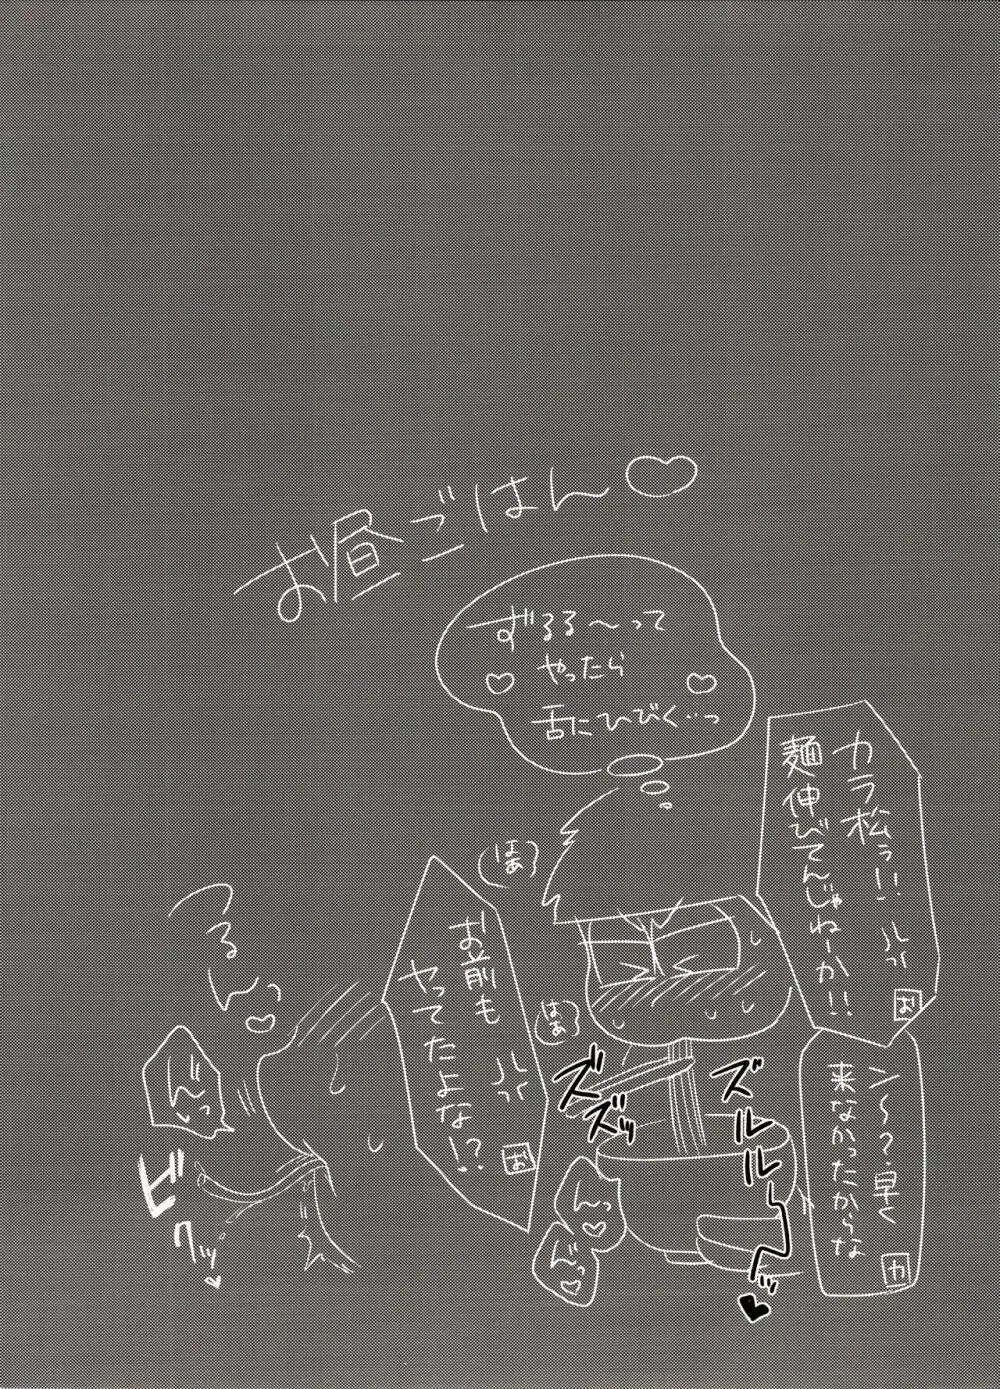 お昼ごはん♡
ずるる〜って
やったら
舌にひびく…っ
カラ松ぅ!!
麺伸びてんじゃねーか!!
お
ン〜?早く
来なかったからな
カ
はあっ
はあっ
お前も
やってたよな!?
お
ズズッ
ズルルル〜ッ
んっ♡
んっ♡
つるんっ♡
んっ
ビクッ♥